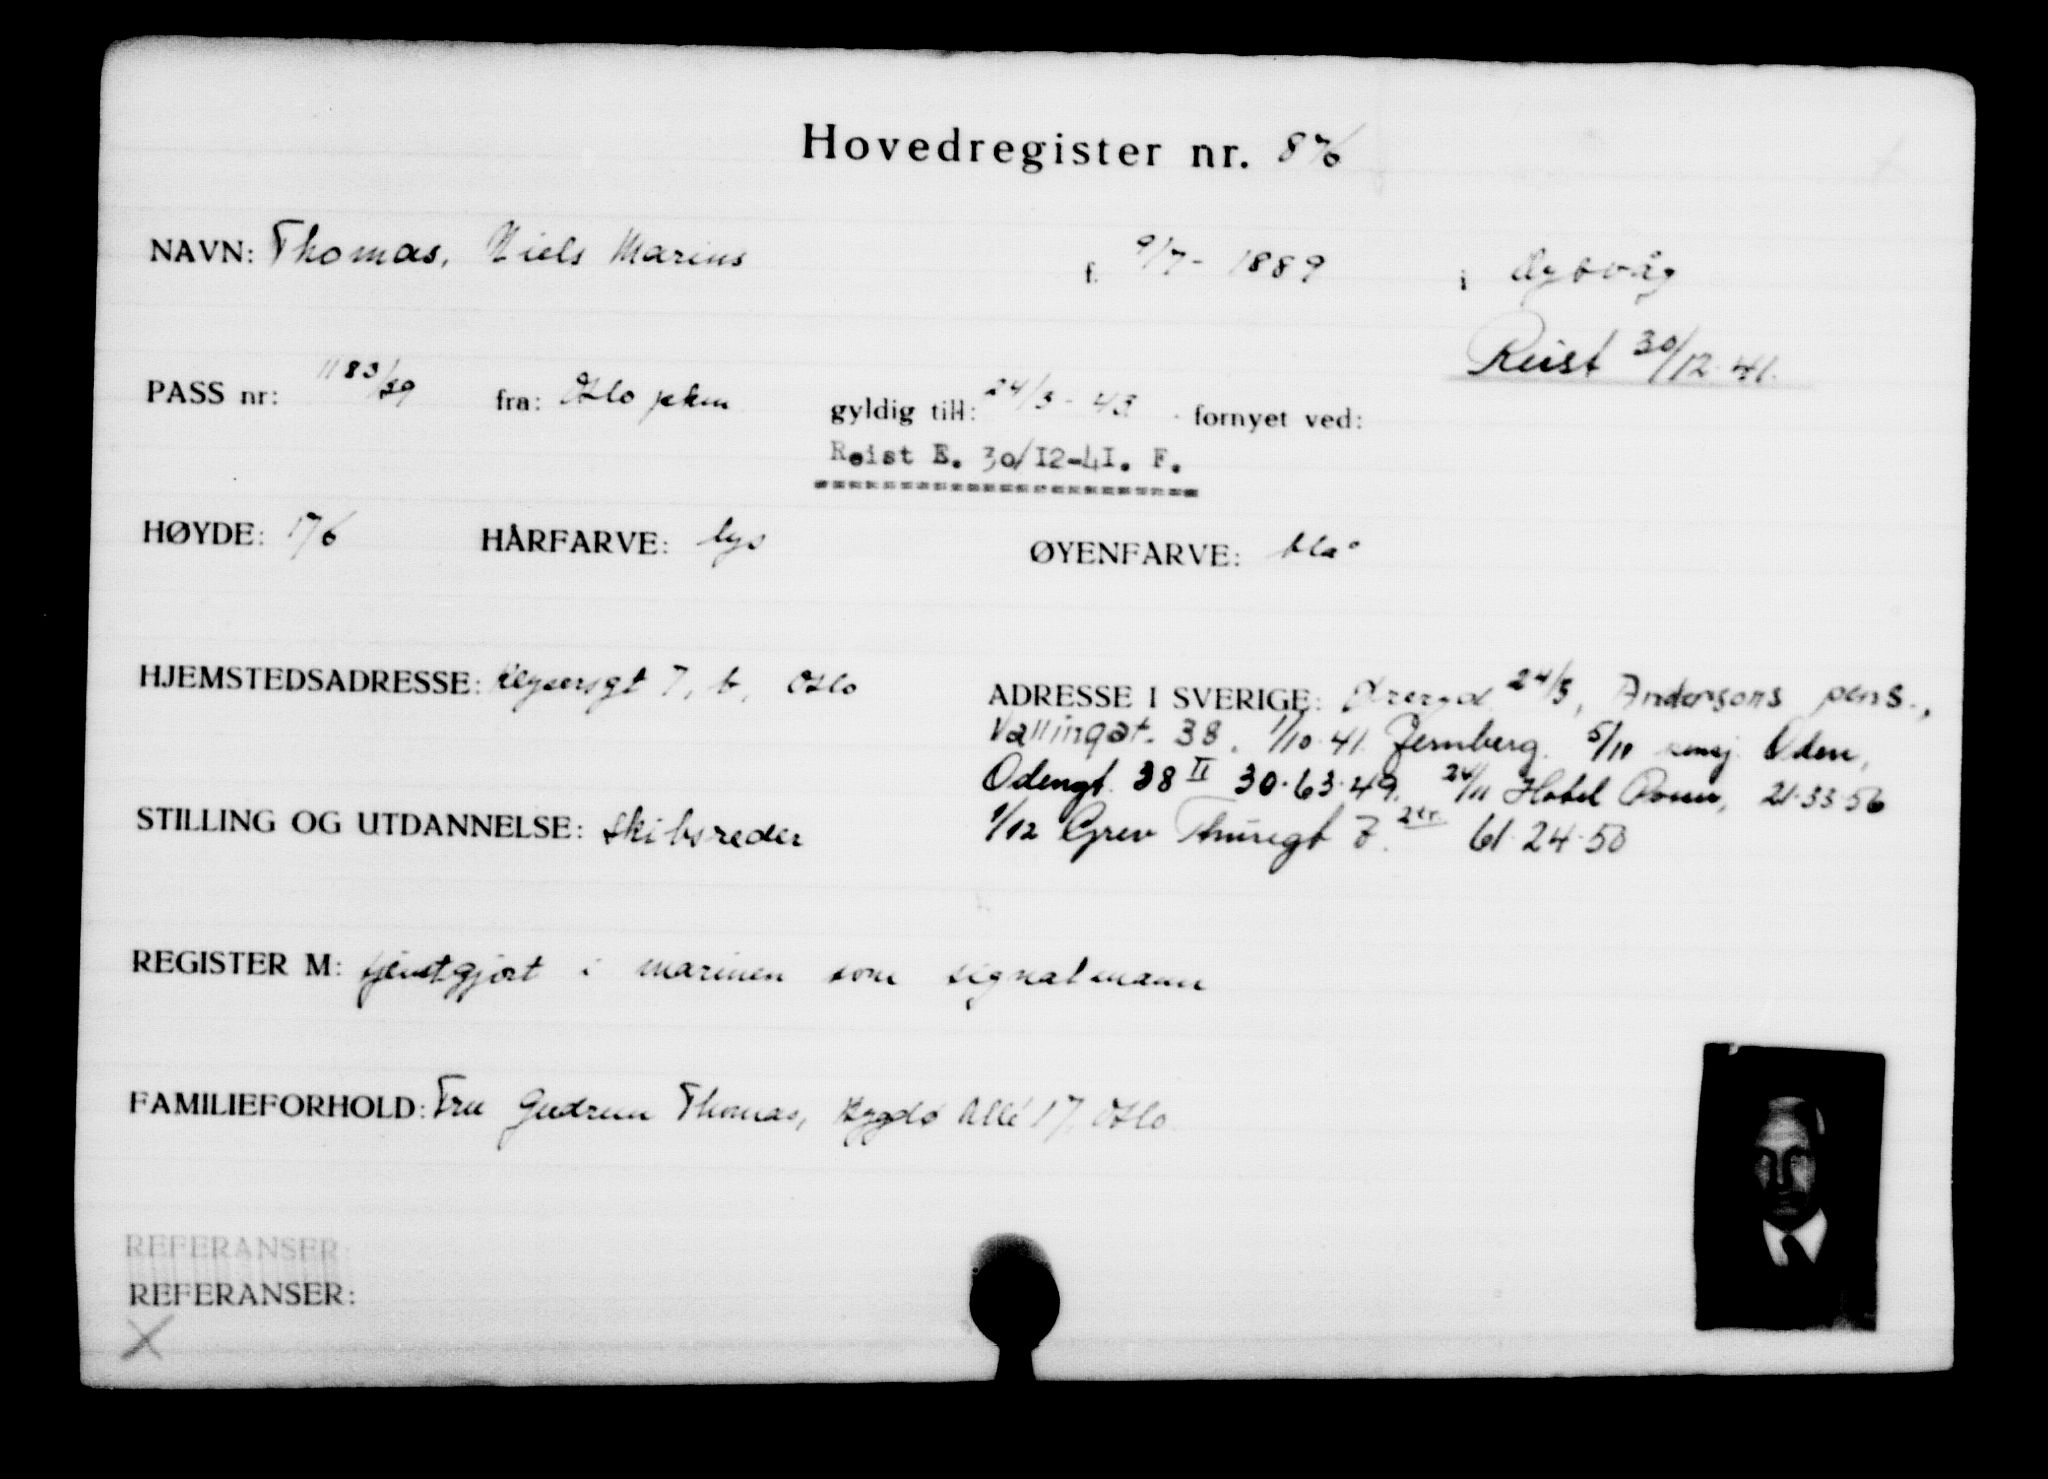 Hovedregister nr. 876
NAVN: Thomas, Niels Marius f. 9/7 - 1889 i Dybvåg
Reist 30/12 41.
PASS nr: 1183/39 fra: Oslo pkm gyldig till: 24/3 - 43 fornyet ved:
Reist E. 30/12-41. F.
HØYDE: 176 HÅRFARVE: lys ØYENFARVE: blå
HJEMSTEDSADRESSE: Keysersgt 7, b, Oslo
ADRESSE I SVERIGE: 24/3, Andersons pens.,
Vallingat. 38. 1/10 41 Jernberg. 5/11 Oden,
Odengt. 38 II 30.63.49. 24/11 Hotel 21.33.56
1/12 Grev Thuregt 7. 2 tr. 61.24.50
STILLING OG UTDANNELSE: Skibsreder
REGISTER M: tjenstgjort i marinen som signalmann
FAMILIEFORHOLD: Fru Gudrun Thomas, Bygdø Allé 17, Oslo
REFERANSER:
REFERANSER:
X